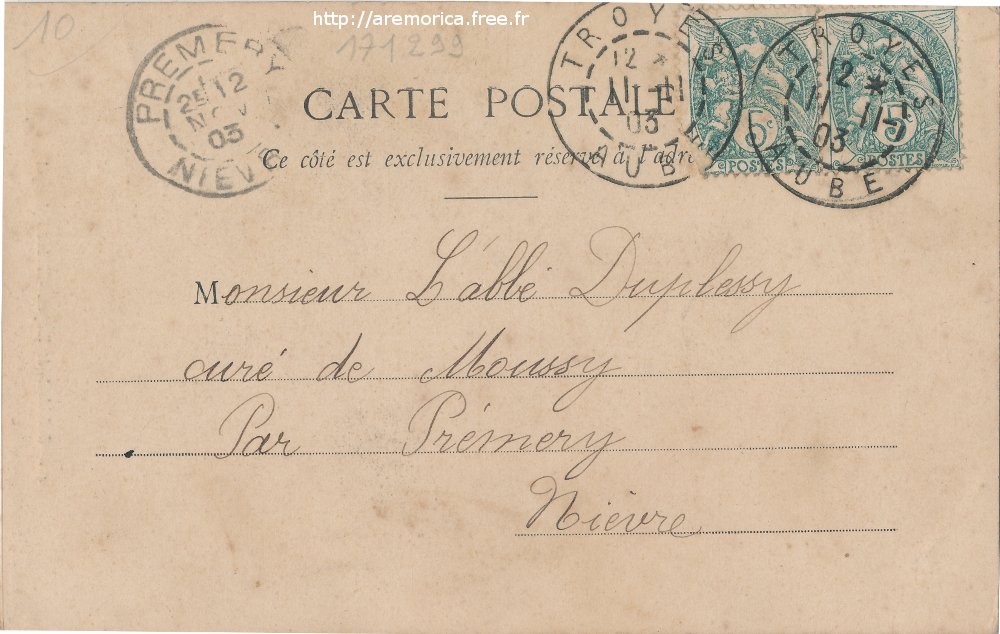 http://aremorica.free.fr
10
171299
PREMERY
25 12
NOV
03
NIEVRE
TROYES
12 *
11-11
03
AUBE
TROYES
12 *
11-11
03
AUBE
5c
POSTES
5c
POSTES
CARTE POSTALE
Ce côté est exclusivement réservé à l'adr
Monsieur L'abbé Duplessy
curé de Moussy
Par Prémery
Nièvre